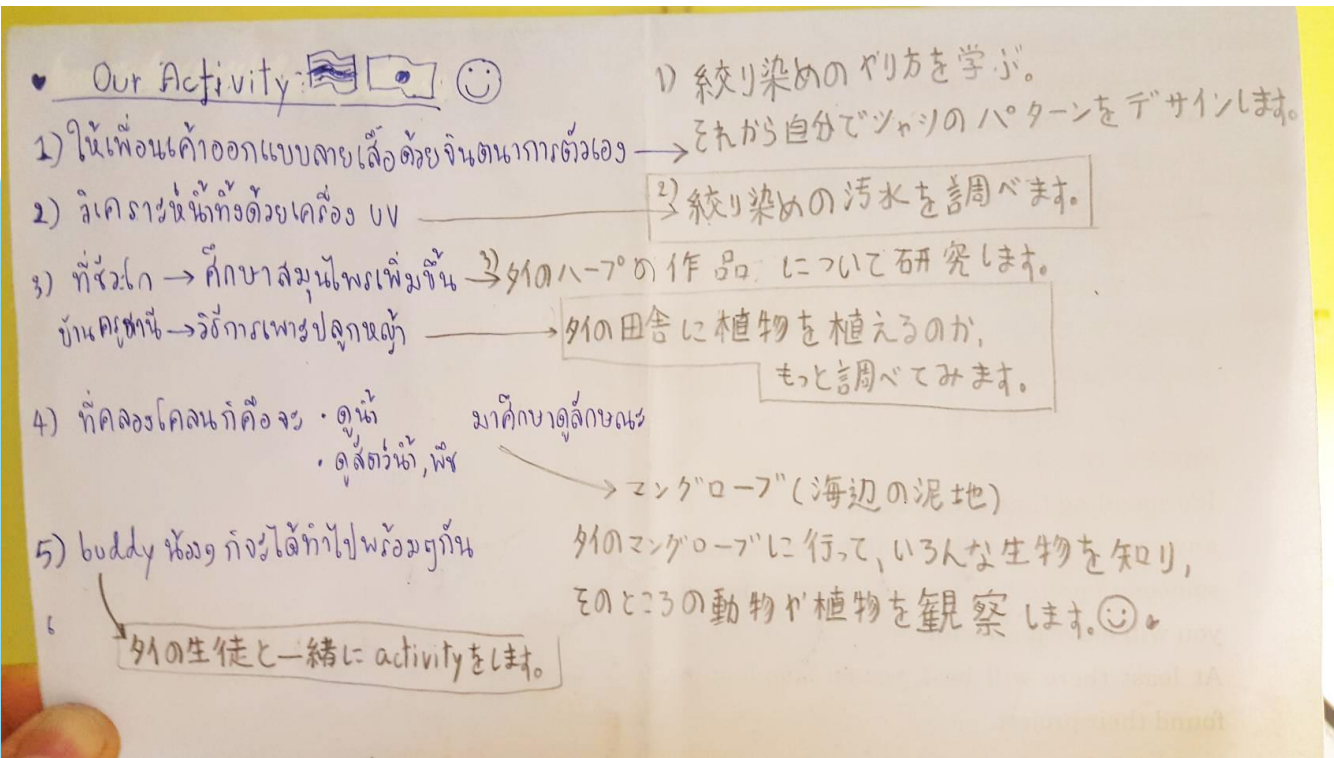 Our Activity:
1) ให้เพื่อนเค้าออกแบบลายเสื้อด้วยจินตนาการตัวเอง
1) 絞り染めのやり方を学ぶ。
それから自分でシャツのパターンをデザインします。
2) วิเคราะห์น้ำทิ้งด้วยเครื่อง UV
2) 絞り染めの汚水を調べます。
3) ที่ชีวะโก → ศึกษาสมุนไพรเพิ่มขึ้น
3) タイのハーブの作品 について研究します。
บ้านครูชานี → วิธีการเพาะปลูกหญ้า
タイの田舎に植物を植えるのか,
もっと調べてみます。
4) ที่คลองโคลนก็คือจะ • ดูน้ำ
• ดูสัตว์น้ำ, พืช
มาศึกษาดูลักษณะ
マングローブ(海辺の泥地)
タイのマングローブに行って, いろんな生物を知り,
そのところの動物や植物を観察します。
5) buddy น้องๆ ก็จะได้ทำไปพร้อมๆกัน
タイの生徒と一緒に activityをします。